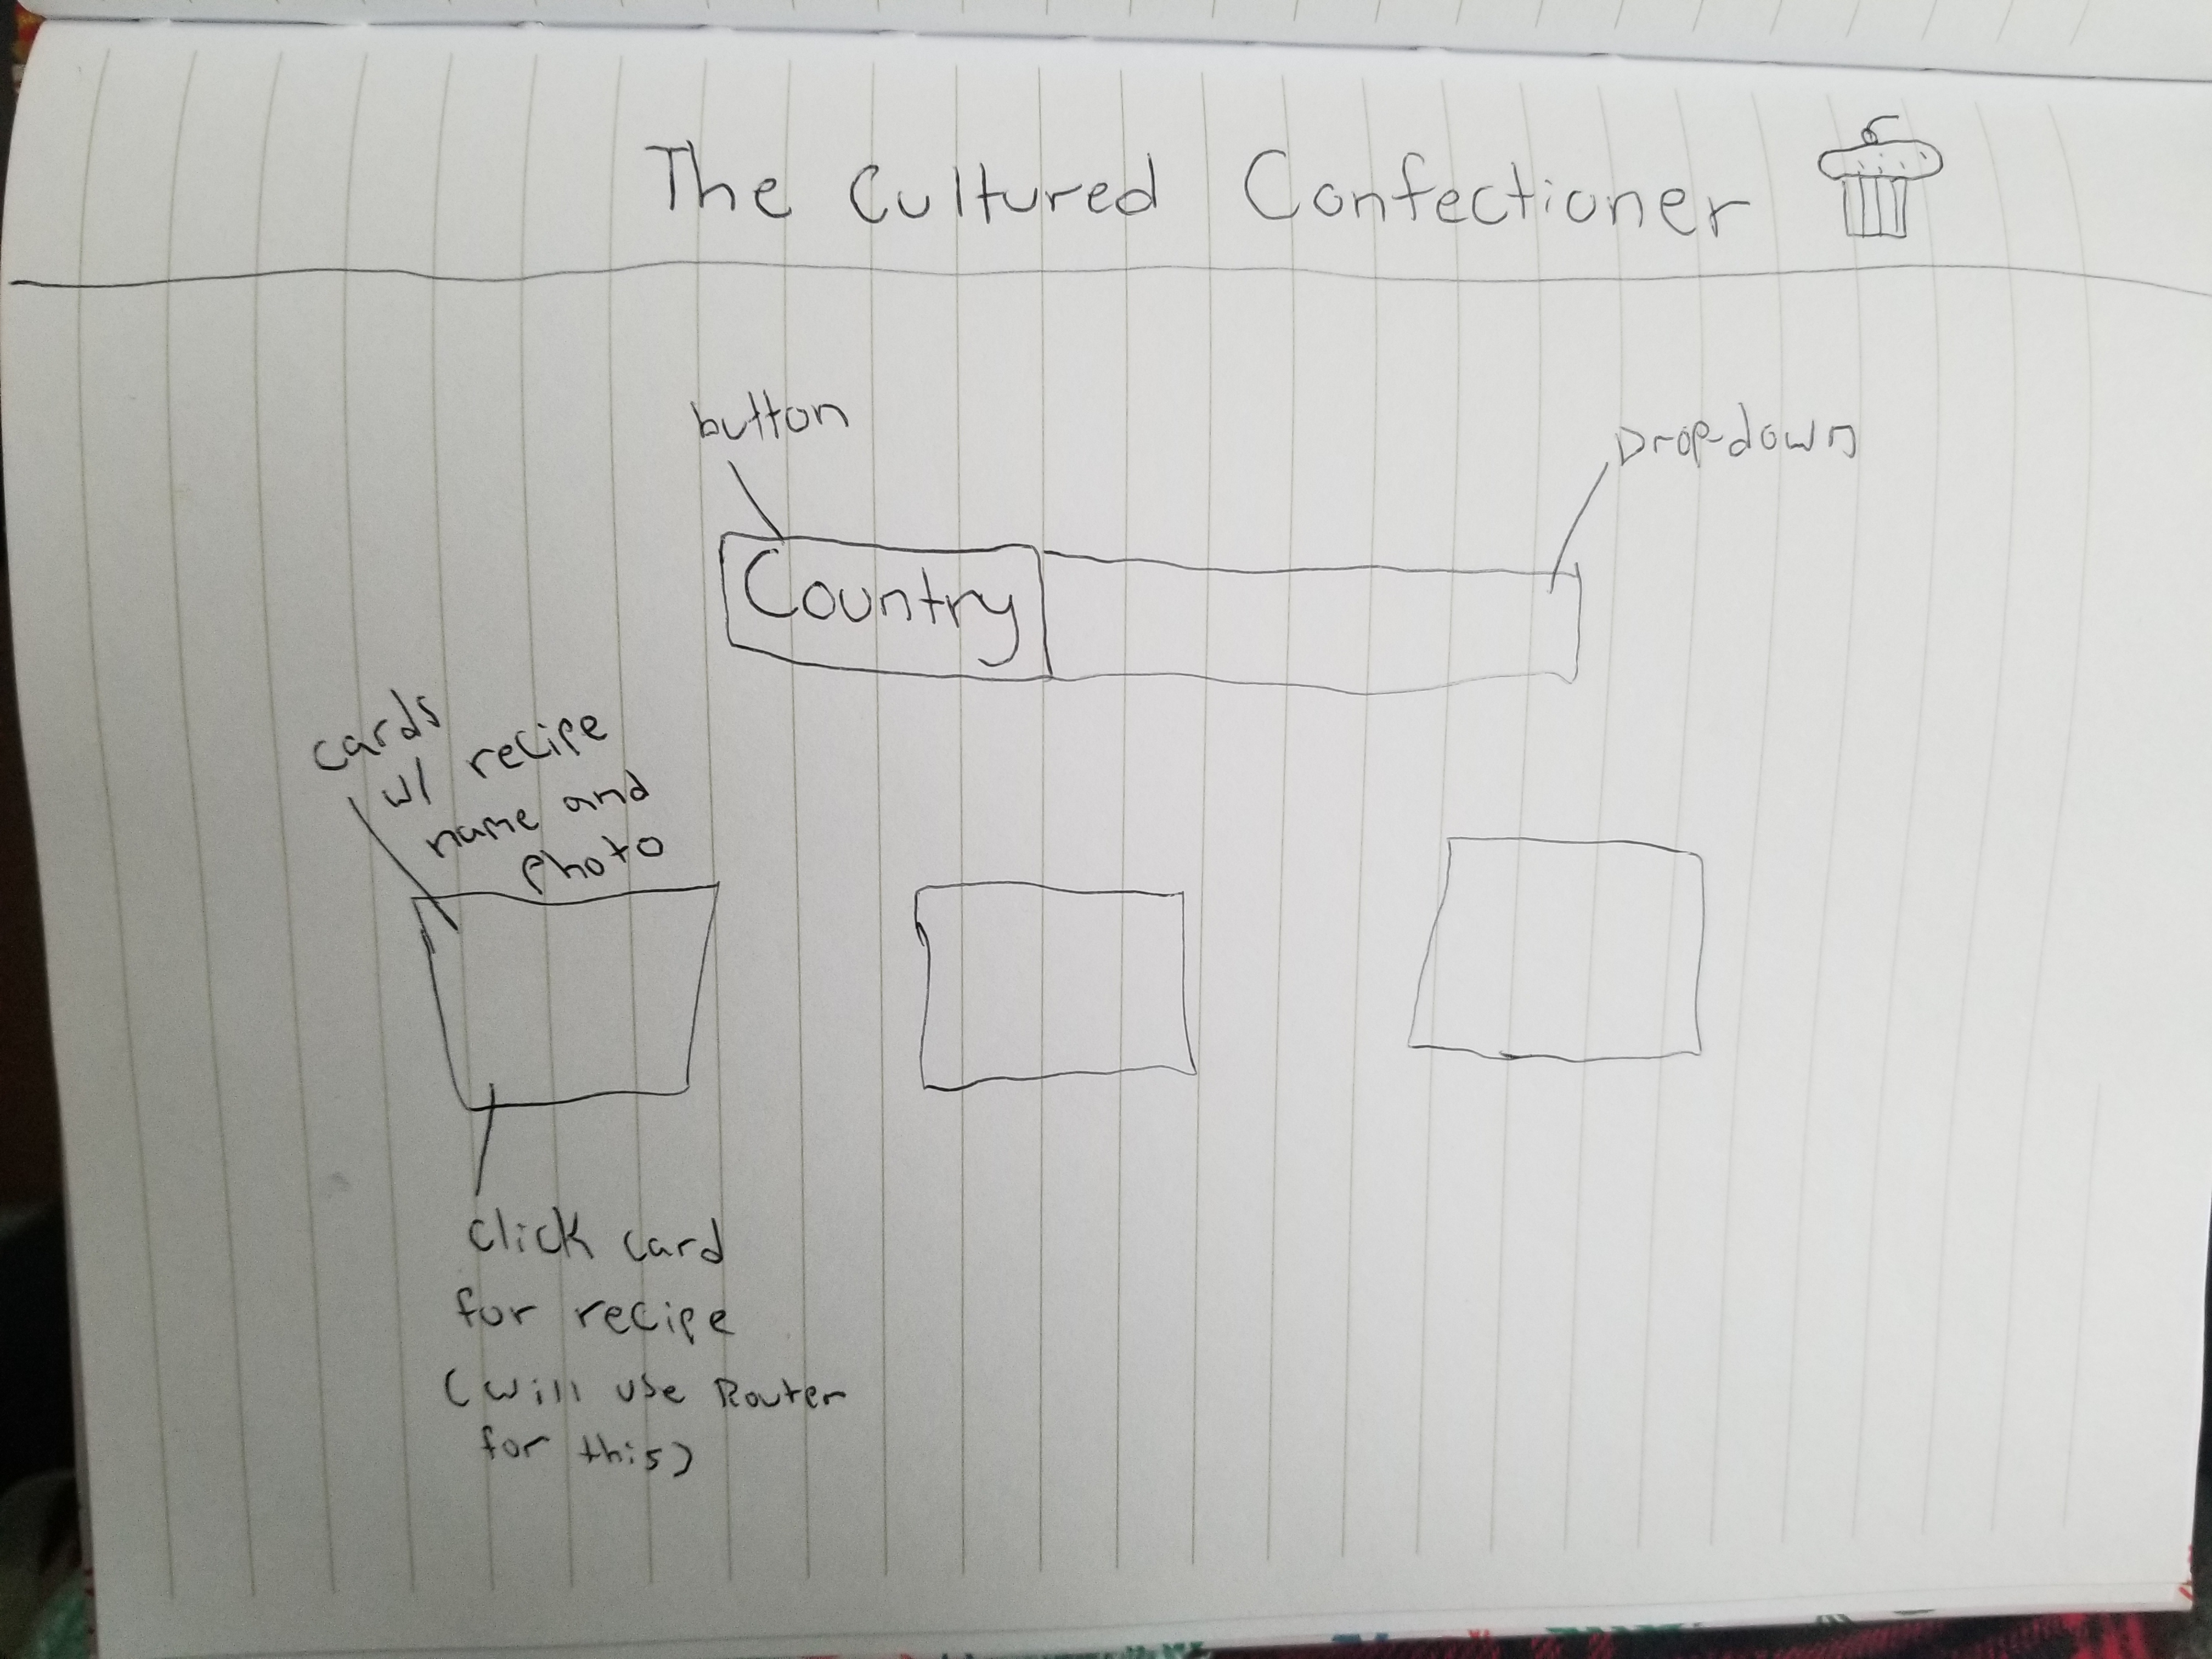 The Cultured Confectioner
button
Dropdown
Country
Cards recipe
w/ name and
photo
Click card
for recipe
(will use Router
for this)